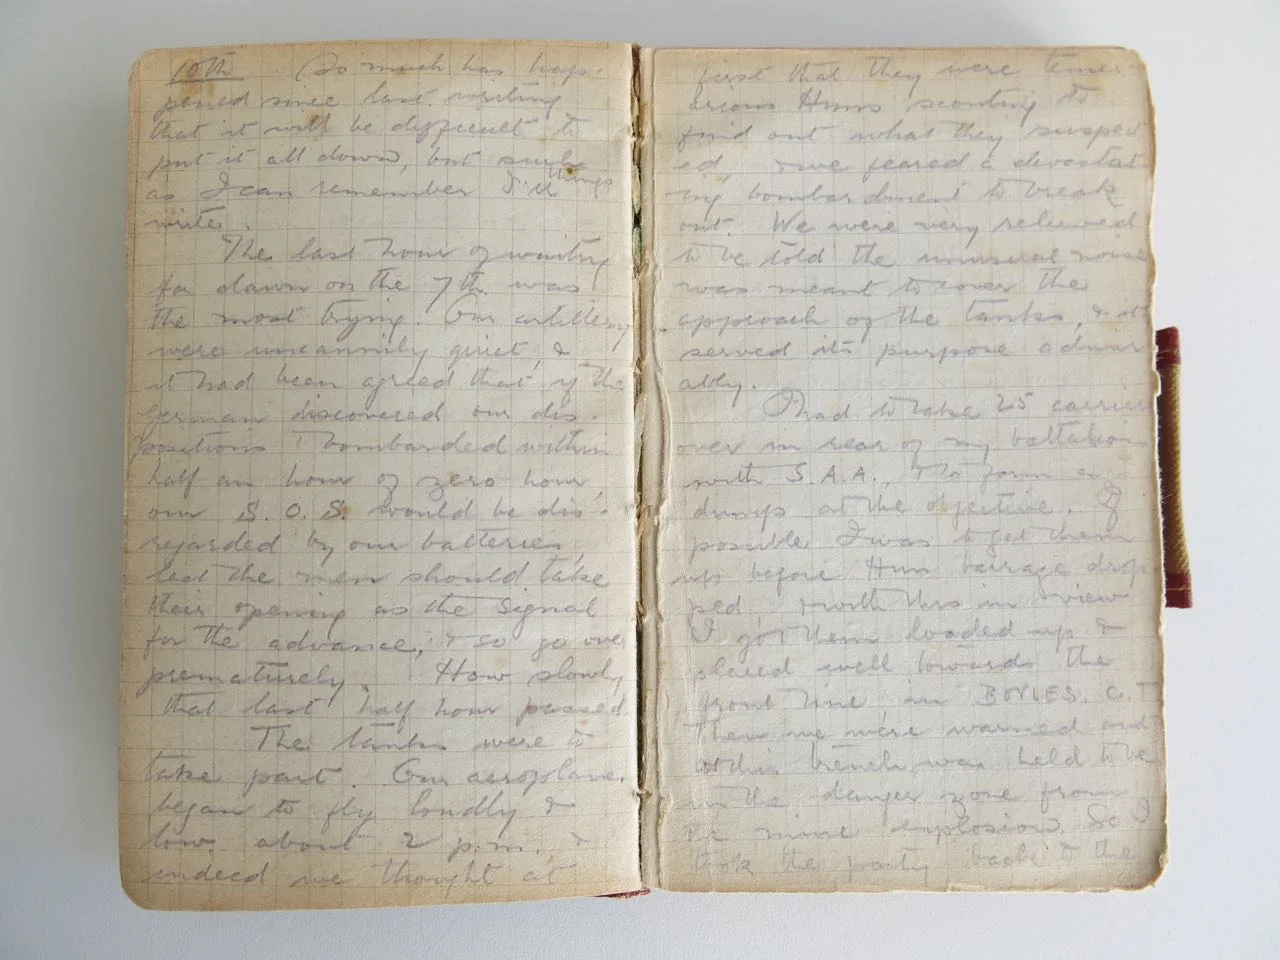 10th So much has hap-
pened since last writing
that it will be difficult to
put it all down, but such
things
as I can remember I'll
write.
The last hour of waiting
for dawn on the 7th was
the most trying. Our artillery
were uncannily quiet, &
it had been agreed that if the
German discovered our dis-
positions & bombarded within
half an hour of zero hour,
our S.O.S. would be dis-
regarded by our batteries,
lest the men should take
their opening as the signal
for the advance, & so go over
prematurely. How slowly
that last half hour passed.
The tanks were to
take part. Our aeroplanes
began to fly loudly &
low about 2 p.m. &
indeed we thought at
first that they were temer-
arious Huns scouting to
find out what they suspect
ed, & we feared a devastat
ing bombardment to break
out. We were very relieved
to be told the unusual noise
was meant to cover the
approach of the tanks, & it
served its purpose admir
ably.
I had to take 25 carriers
over in rear of my battalion
with S.A.A., & to form
dumps at the objective. If
possible I was to get them
up before Hun barrage drop-
ped. With this in view
I got them loaded up &
placed well towards the
front line, in BOYLES. C.T.
Then we were warned
this trench was held to be
in the danger zone from
the mine explosion. So I
took the party back to the